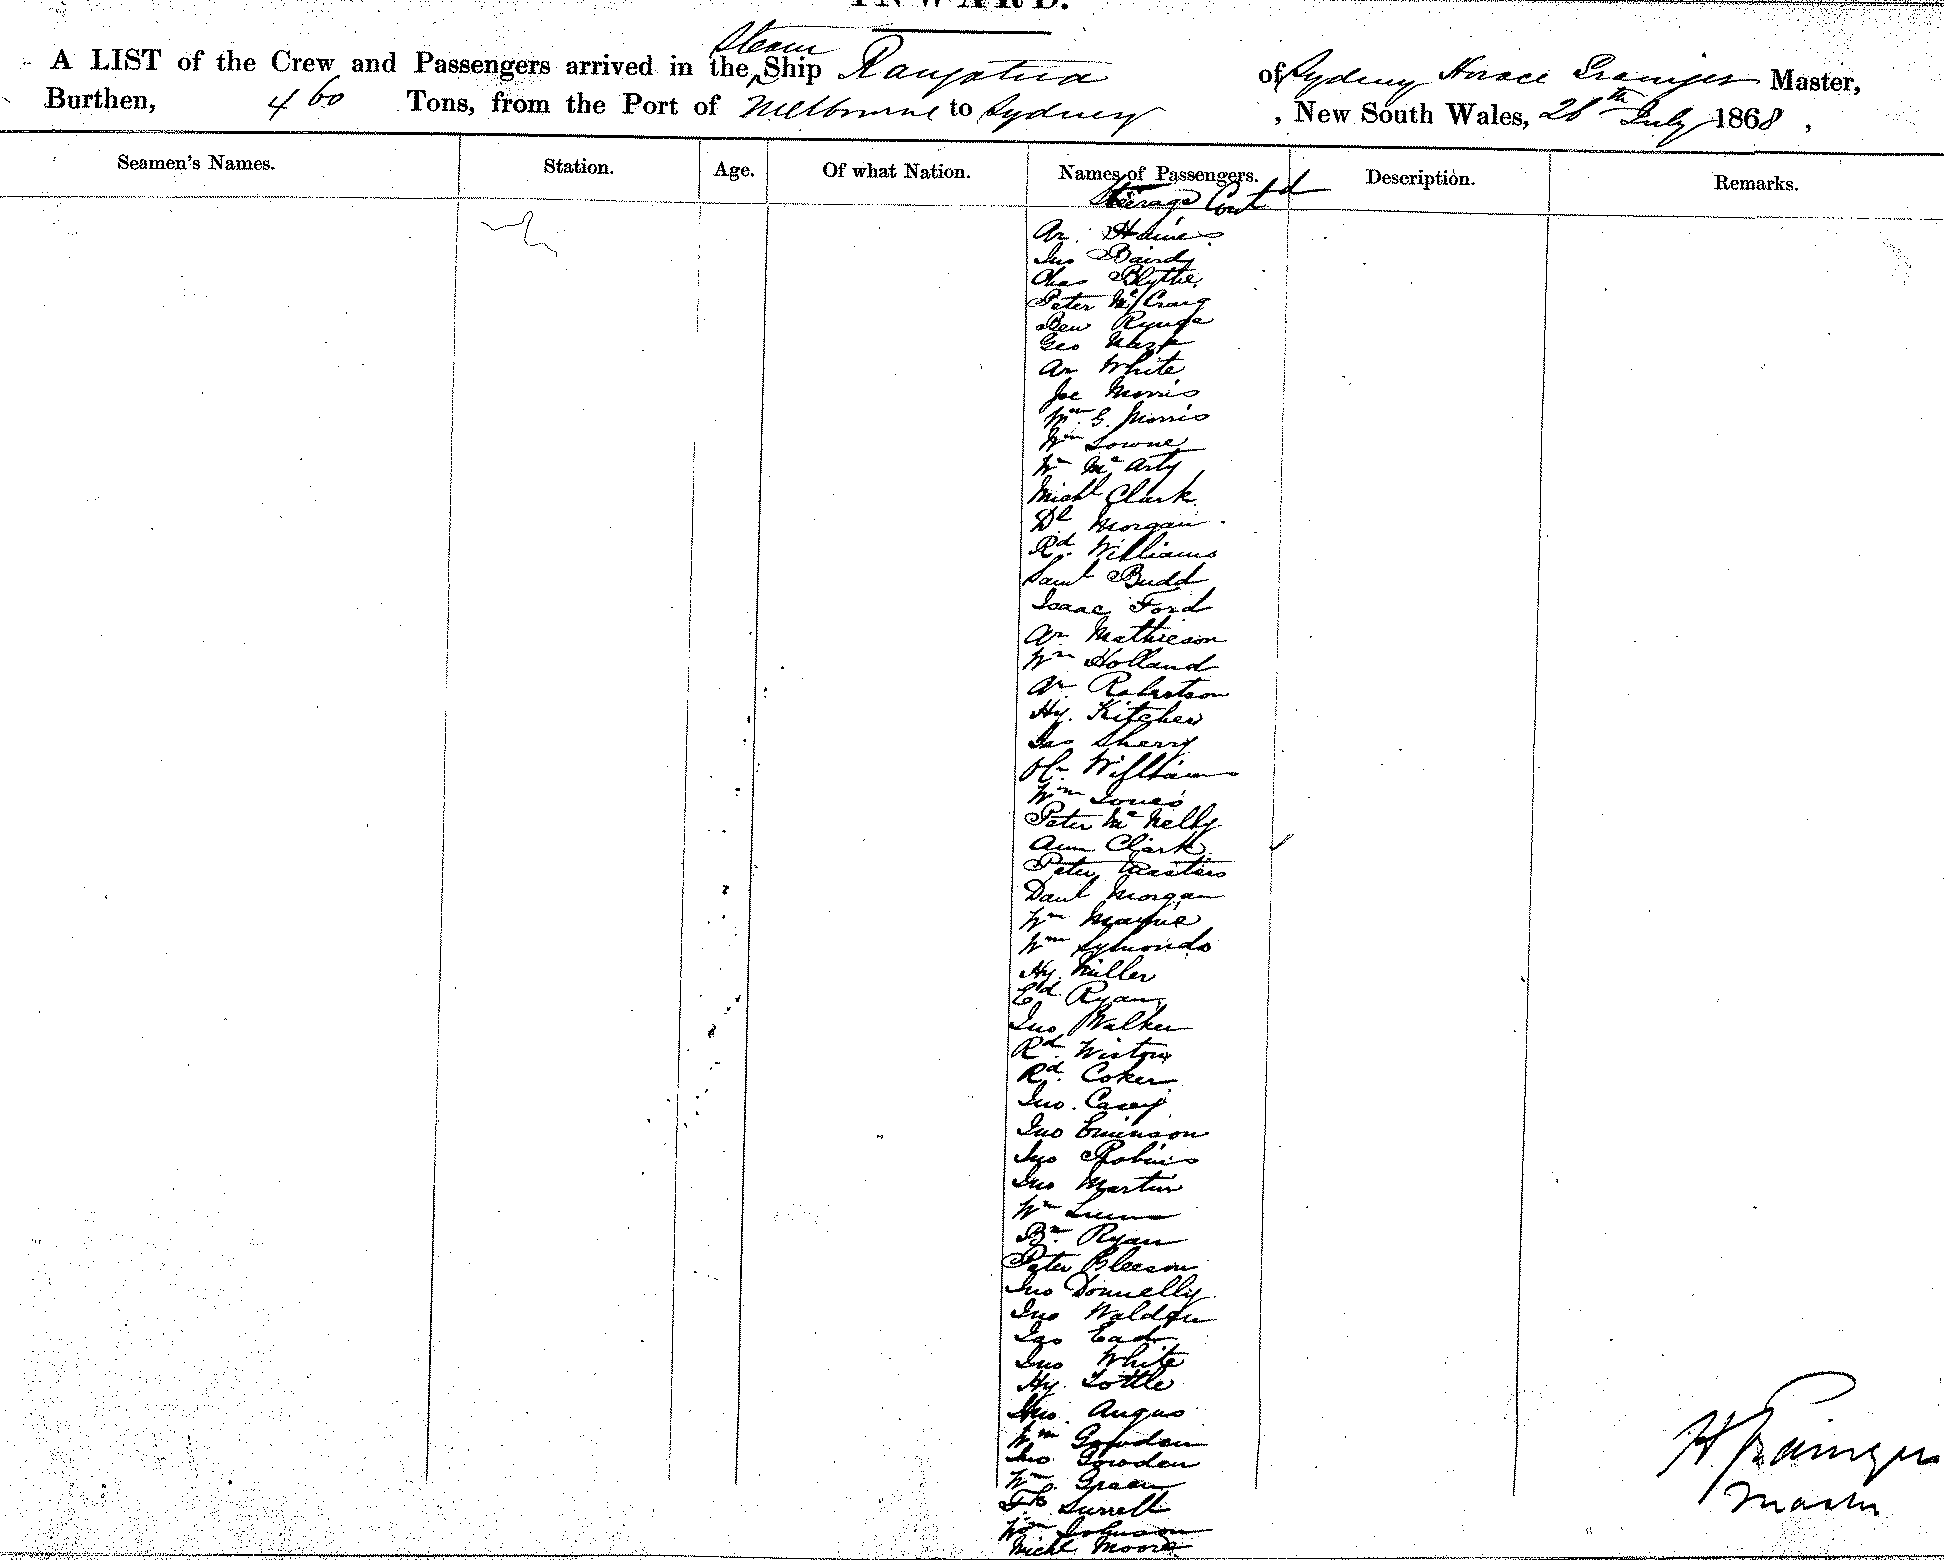 INWARD.
Steam
A LIST of the Crew and Passengers arrived in the Ship Rangatira of Sydney Horace Grainger Master,
Burthen, 460 Tons, from the Port of Melbourne to Sydney, New South Wales, 28th July 1868,
Seamen's Names. Station. Age. Of what Nation. Names of Passengers. Description. Remarks.
Steerage Contd
Ar. Haines
Jno Baird
Chas Blythe
Peter McCraig
Ben
Geo
Ar White
Joe Morris
Wm G. Morris
Wm Lowne
Wm McArty
Michl Clark
Dl Morgan
Rd. Williams
Saml Budd
Isaac Ford
Ar Mathieson
Wm Holland
Ar. Robertson
Hy. Kitchen
Jas Sherry
Williams
Wm Jones
Peter McNelly
Ann Clark
Peter
Danl Morgan
Wm Mayne
Wm Symonds
Hy. Miller
Ed. Ryan
Jno Walker
Rd.
Rd. Coker
Jno. Casey
Jno Eminson
Jno Robins
Jno Martin
Wm
Bn. Ryan
Peter Gleeson
Jno Donnelly
Jno Waldon
Jas Ead
Jno White
Hy. Tottle
Angus
Wm Gowden
Jno. Gowden
Wm. Green
Surrett
Wm Johnson
Michl Moore
H Grainger
Master